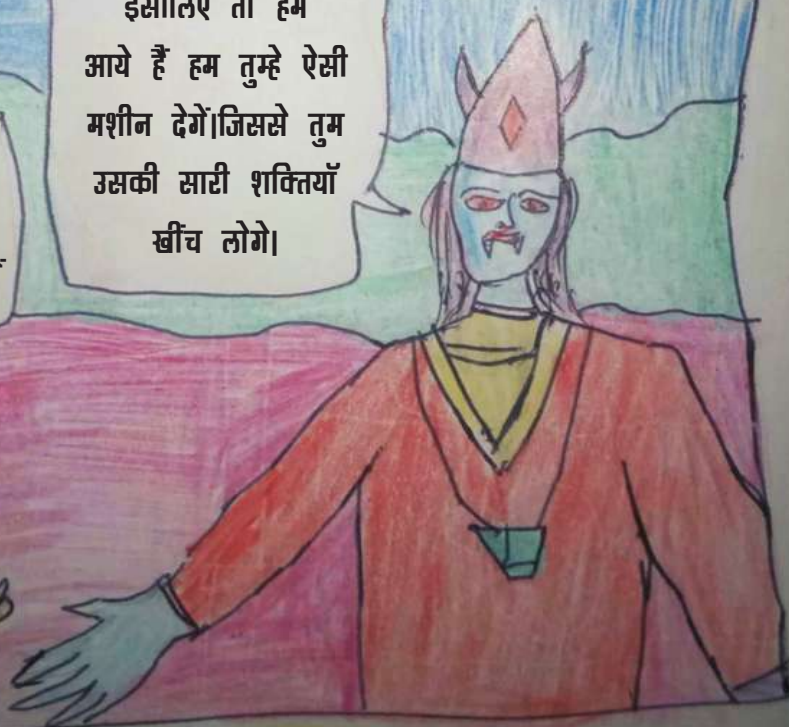 इसीलिए तो हम
आये हैं हम तुम्हे ऐसी
मशीन देगें।जिससे तुम
उसकी सारी शक्तियॉ
खींच लोगे।